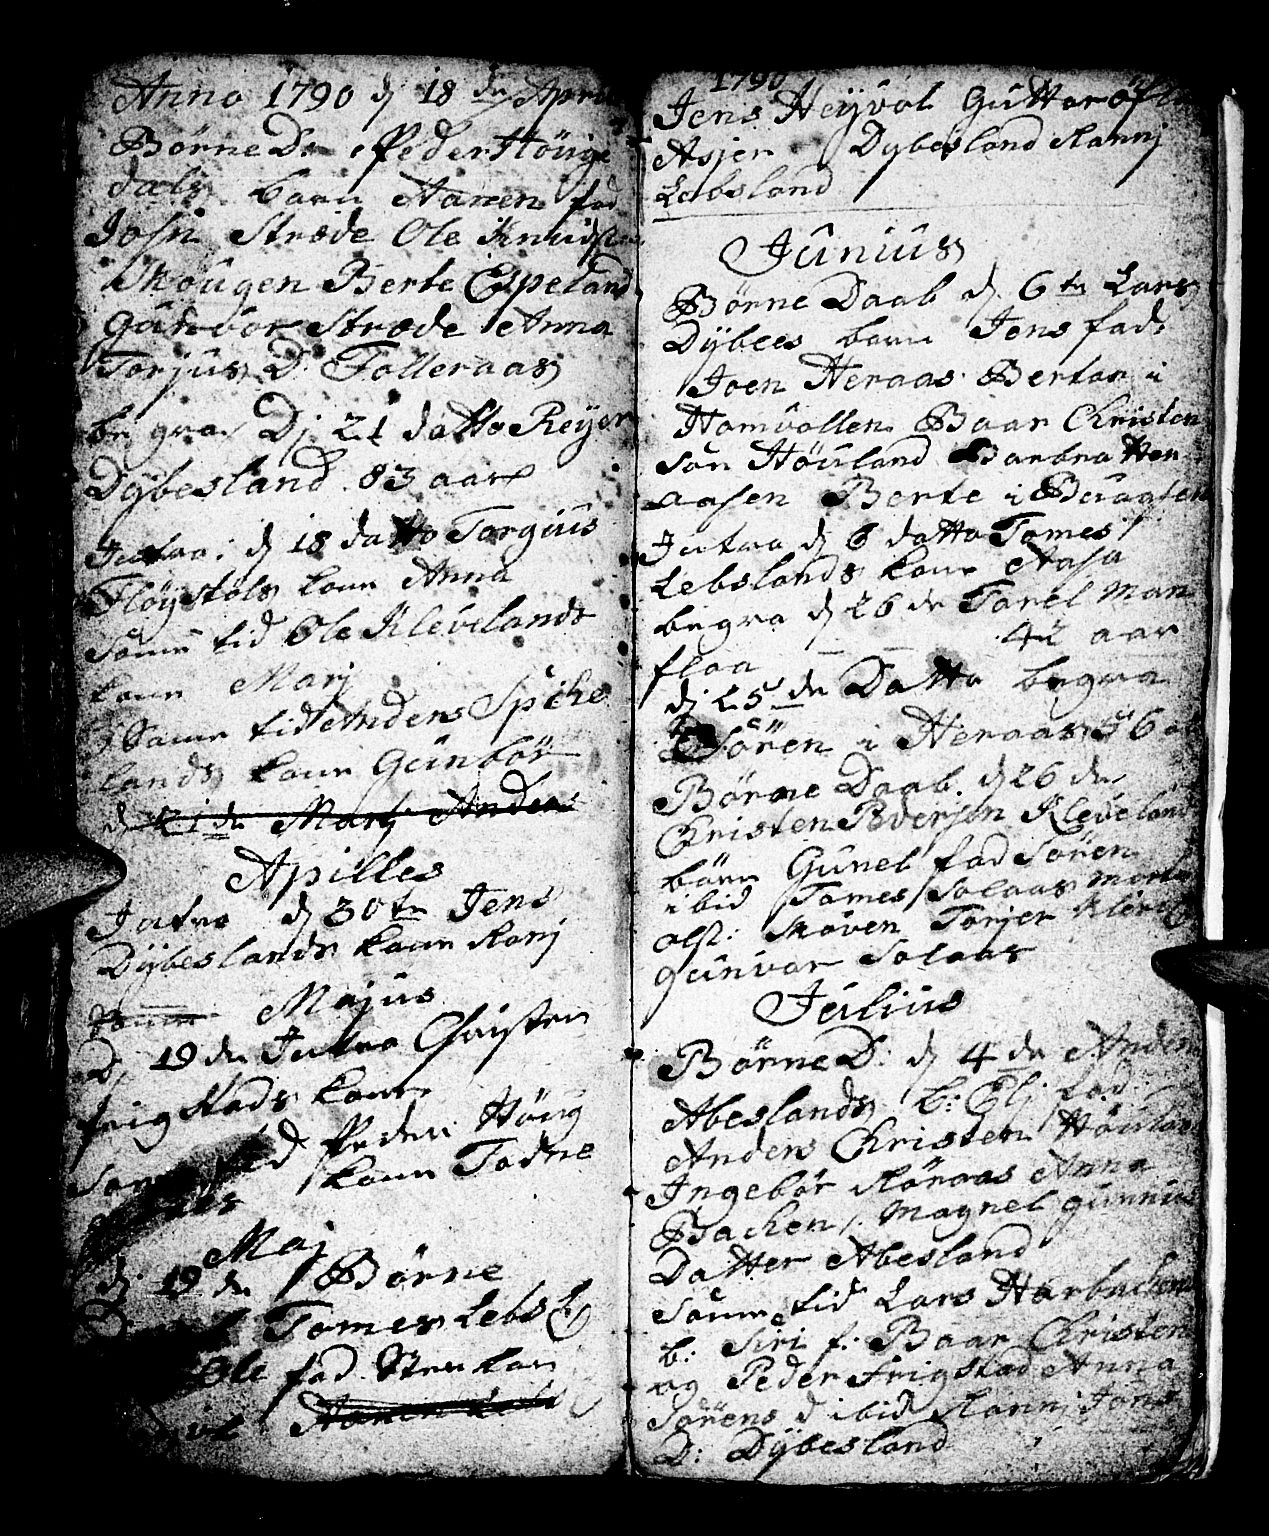 Anno 1790 dj 18 de Apri
Børne D: Peder Höüge
dals barn Aanen fad
Josn Stræde Ole Knuds
Skougen Berte Espeland
Gunvor Stræde Anna
Torjus D: Folleraas
begra Dj 21 datto Reyer
Dybesland 83 aar
Intro: dj 18 datto Torgius
Fløystøls kone Anna
Same tid Ole Klevelands
kone Marj
Same tid Anders Spike
lands kone Günbör
dj 21 de Marj Anders
Apilles
Intro dj 30te Jens
Dybeslands kone Karj
kone Majus
Dj 19 de Intro Christen
frigstads kone
Same tid Peder Höüg
kone Todne
Maj
dj 19 de Börne
D: Tomes Lebsl
Ole fad Sten
Aanen
1790
Jens Heyvol Guttor
Asjer Dybesland Karnj
Lebsland
Junius
Børne Daab dj 6te Lars
Dybees barn Jens fad:
Joen Heraas Bertor i
Homvollen Baar Christen
sön Höuland Barbra Her
aasen Berte i Braaten
Intro dj 6 datto Tomes
Lebslands kone Aasa
begra dj 26 de Tarel Man
flaa 42 aar
dj 25 de Datto begra
Sören i Heraas 56 a
Børne Daab dj 26 de
Christen Pedersen Kleveland
börn Gunel fad Sören
ibid Tomes Solaas
olst: Skøven Torjer
gunvor Solaas
Julius
Børne D: dj 4 de Anders
Abeslands b: Elj fad:
Anders Christen Höulan
Ingebör Köraas Anna
Backen Magnel gunnius
Datter Abesland
Same tid Lars Harbacken
b: Siri f: Baar Christen
og Peder Frigstad Anna
Sörens d ibid Karnj Jons
D: Dybesland